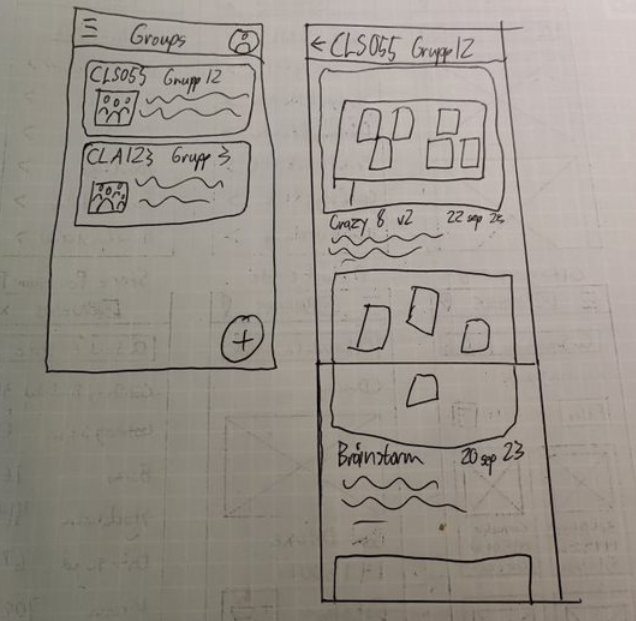 Groups
CLS055 Grupp 12
CLA123 Grupp 3
+
←CLS055 Grupp 12
Crazy 8 v2 22 sep 23
Brainstorm 20 sep 23